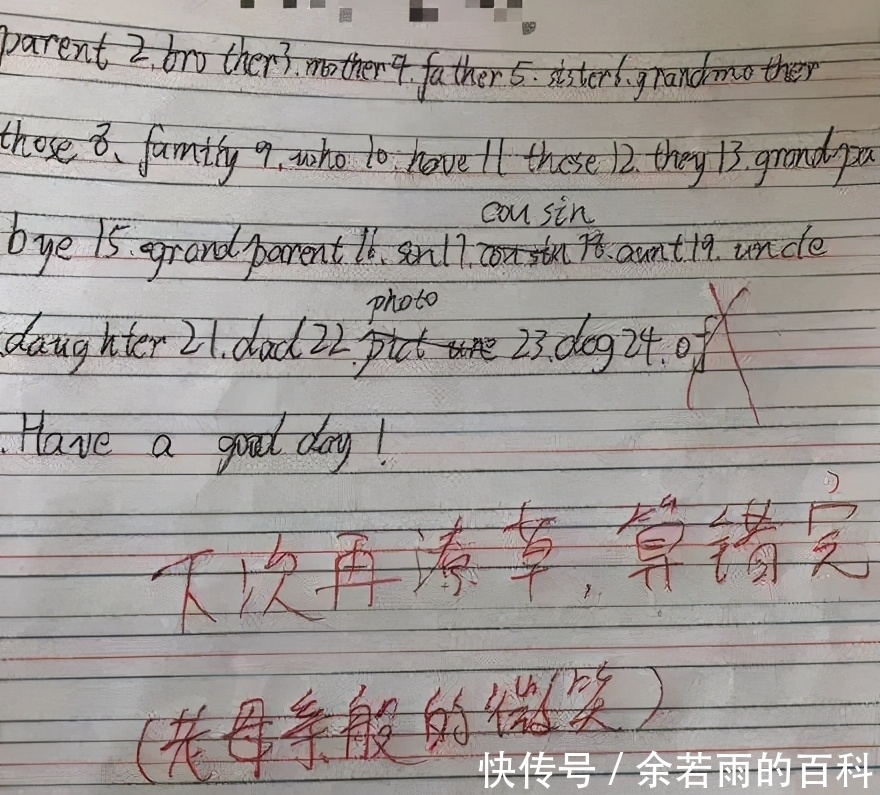 parent 2.brother3.mother4.father5.sister6.grandmother
those 8、family 9.who 10.have 11 these 12.they 13.grandpa
cousin
bye 15.grandparent 16.son17.cousin 18.aunt19.uncle
photo
daughter 21.dad22.picture 23.dog24.of
.Have a good day!
下次再潦草,算错完
(老母亲般的微笑)
快传号 / 余若雨的百科